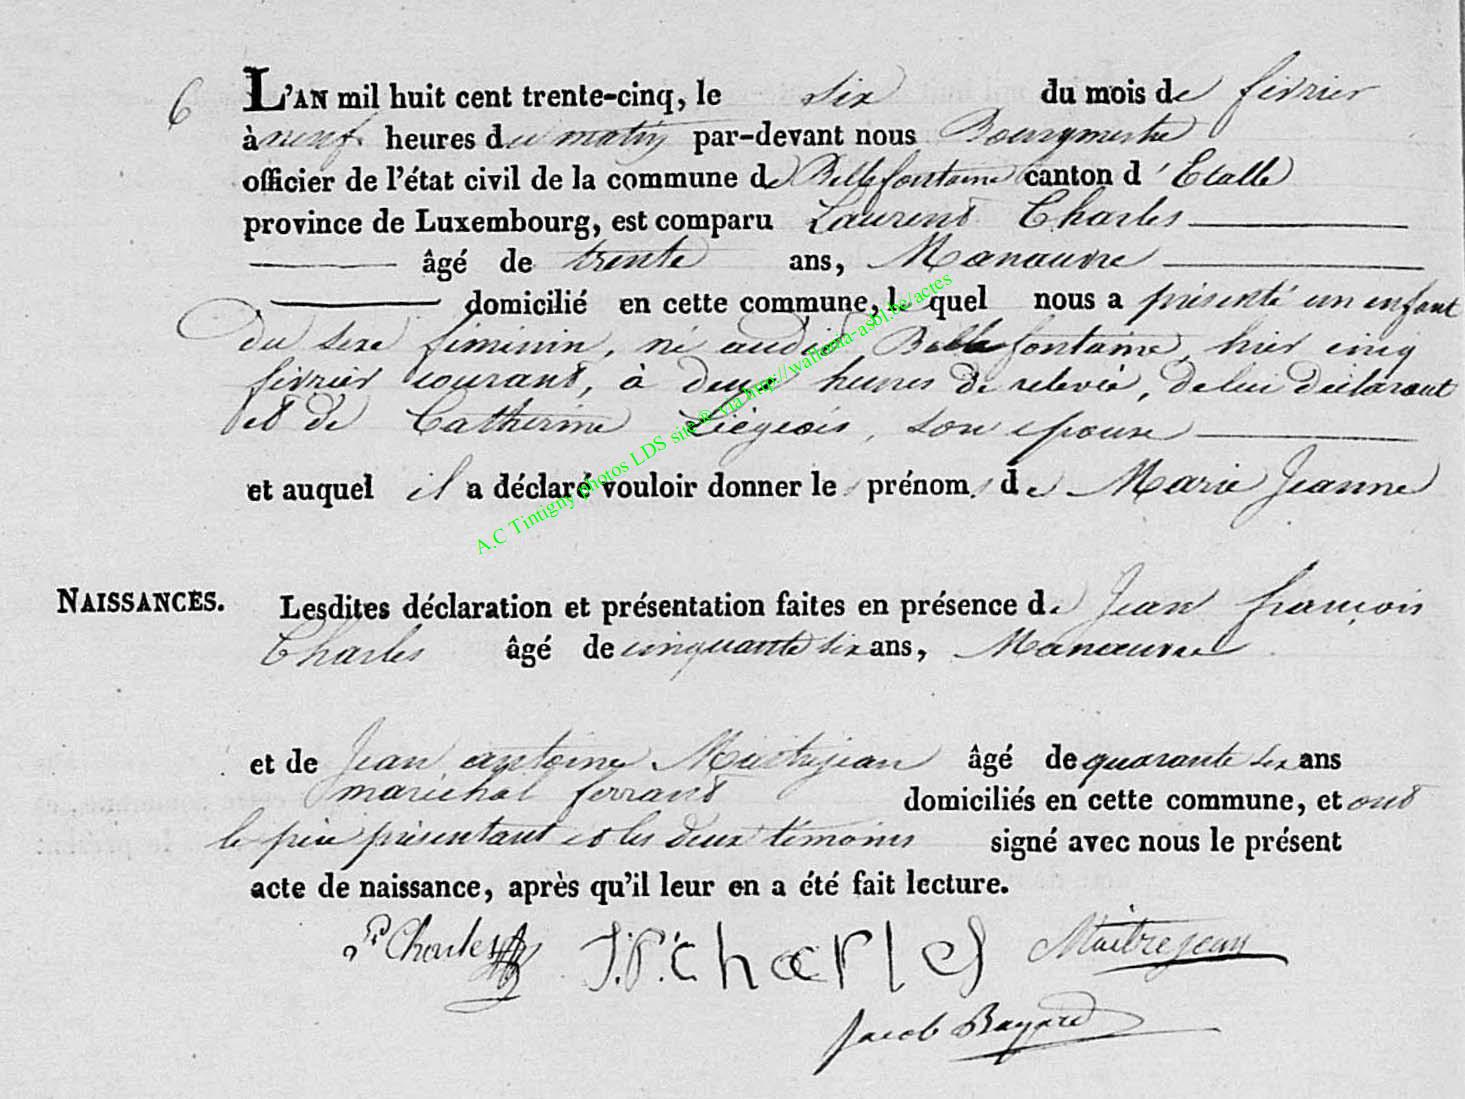 6 L'AN mil huit cent trente-cinq, le six du mois de février
à neuf heures du matin par-devant nous Bourgmestre
officier de l'état civil de la commune de Bellefontaine canton d'Etalle
province de Luxembourg, est comparu Laurent Charles
âgé de trente ans, Manœuvre
domicilié en cette commune, lequel nous a présenté un enfant
du sexe féminin, né audit Bellefontaine, hier cinq
février courant, à deux heures de relevée, de lui déclarant
et de Catherine Liégeois, son épouse
et auquel il a déclaré vouloir donner les prénoms de Marie Jeanne
NAISSANCES. Lesdites déclaration et présentation faites en présence de Jean françois
Charles âgé de cinquante six ans, Manœuvre
et de Jean antoine Maitrejean âgé de quarante six ans
maréchal ferrant domiciliés en cette commune, et ont
le père présentant et les deux témoins signé avec nous le présent
acte de naissance, après qu'il leur en a été fait lecture.
Charles J.F. Charles Maitrejean
Jacob Bayard
A.C Tintigny photos LDS site® via http://wallonia-asbl.be/actes